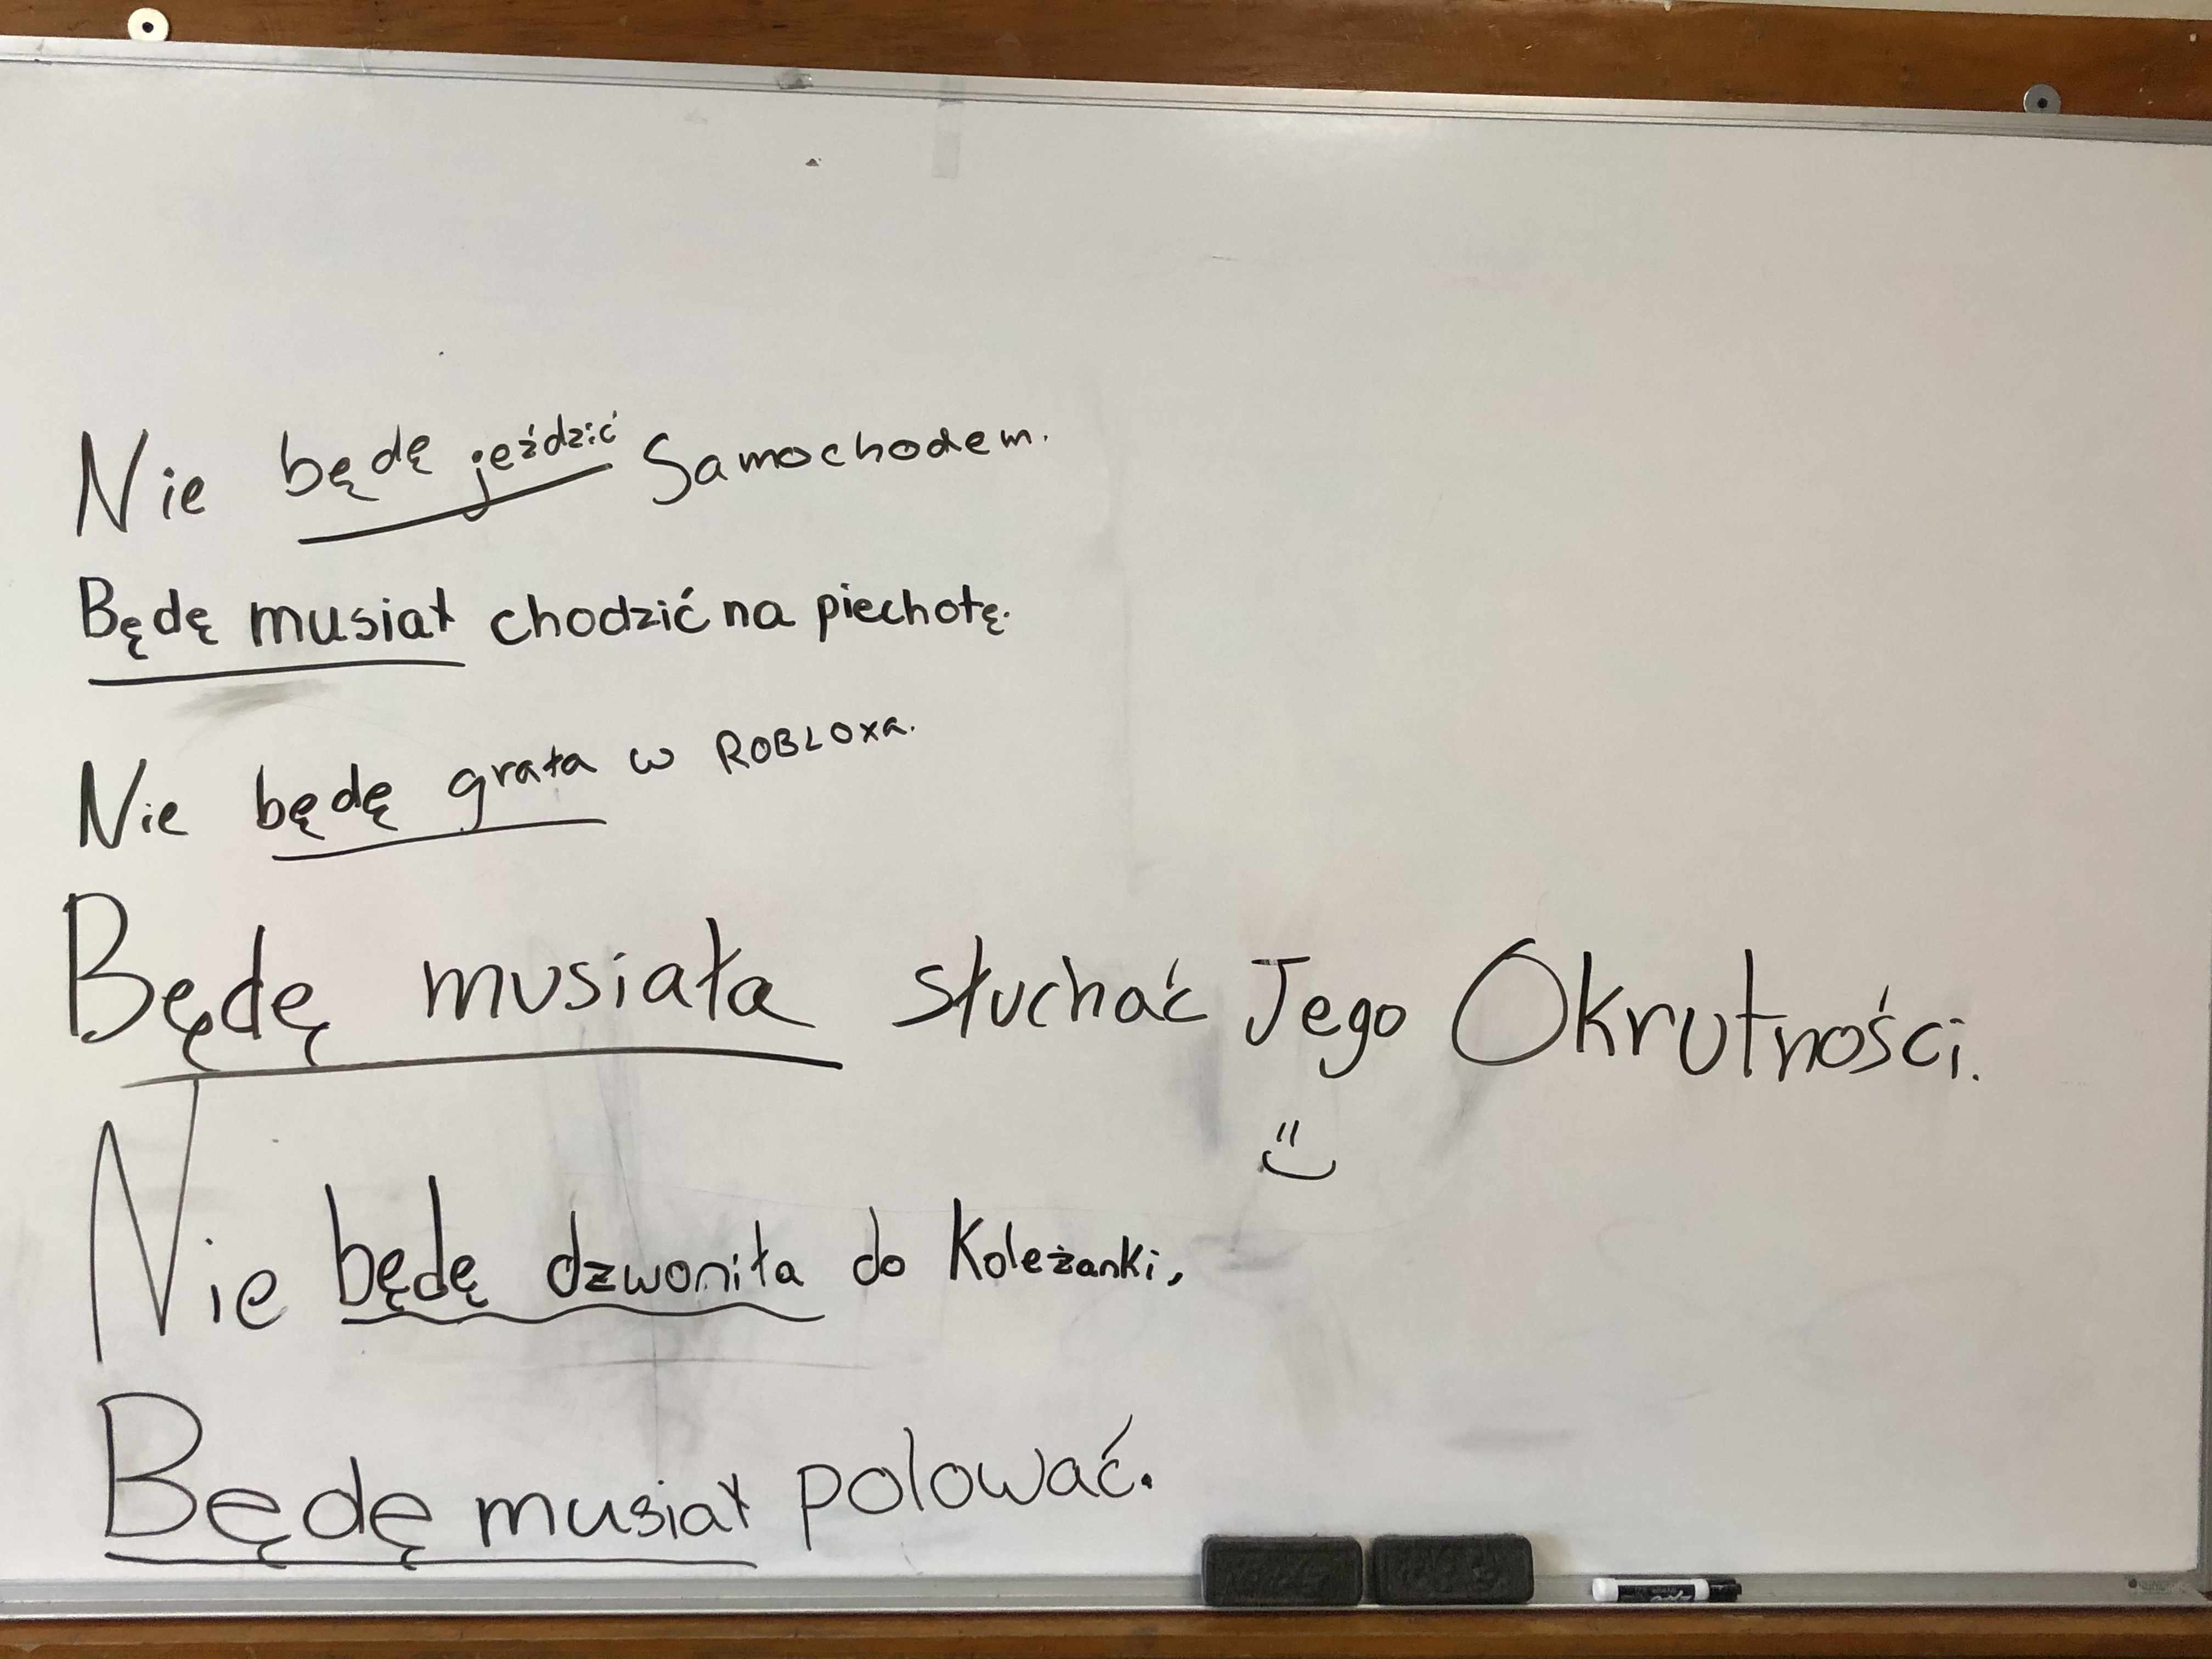 Nie będę jeździć Samochodem.
Będę musiał chodzić na piechotę.
Nie będę grała w ROBLOXA.
Będę musiała słuchać Jego Okrutności.
Nie będę dzwoniła do Koleżanki,
Będę musiał polować.